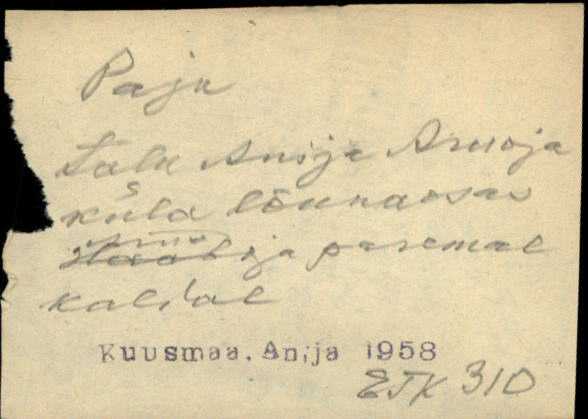 Paju
talu Anija Aruoja
küla lõunaosas
oja paremal
kaldal
Kuusmaa, Anija 1958
ETK 310